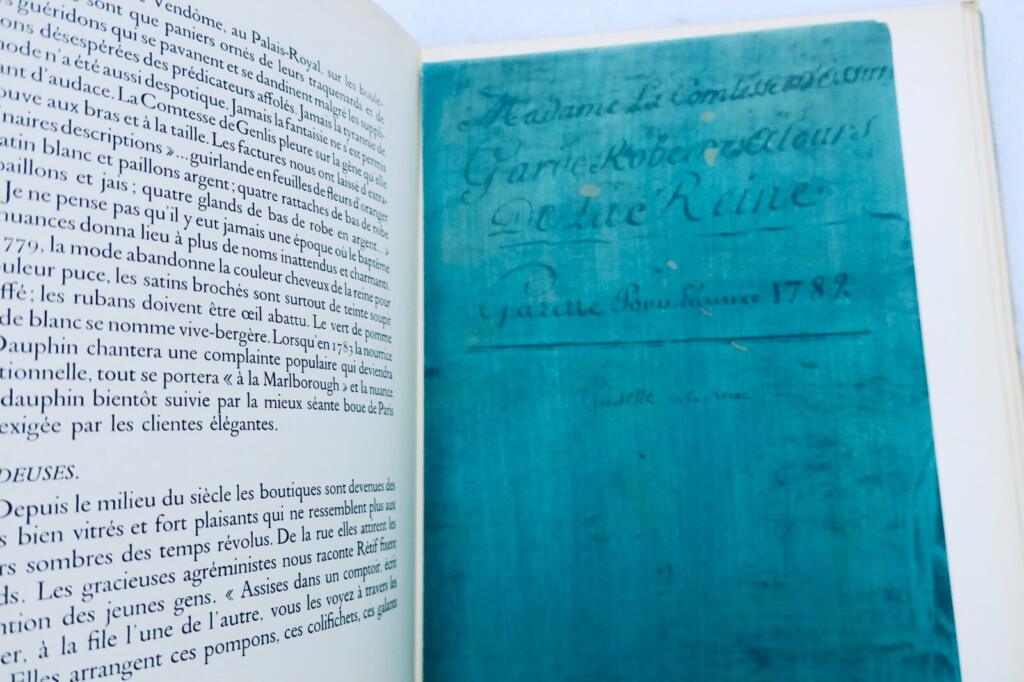 Vendôme, au Palais-Royal, sur les boule-
sont que paniers ornés de leurs traquenards et de
guéridons qui se pavanent et se dandinent malgré les suppli-
ons désespérées des prédicateurs affolés. Jamais la tyrannie de
mode n'a été aussi despotique. Jamais la fantaisie ne s'est permis
ant d'audace. La Comtesse de Genlis pleure sur la gêne qu'elle
ouve aux bras et à la taille. Les factures nous ont laissé d'extra-
inaires descriptions »... guirlande en feuilles de fleurs d'oranger
atin blanc et paillons argent; quatre rattaches de bas de robe
paillons et jais; quatre glands de bas de robe en argent... »
Je ne pense pas qu'il y eut jamais une époque où le baptême
nuances donna lieu à plus de noms inattendus et charmants.
779, la mode abandonne la couleur cheveux de la reine pour
uleur puce, les satins brochés sont surtout de teinte soupir
ffé; les rubans doivent être œil abattu. Le vert de pomme
de blanc se nomme vive-bergère. Lorsqu'en 1783 la nourrice
Dauphin chantera une complainte populaire qui deviendra
tionnelle, tout se portera « à la Marlborough » et la nuance
dauphin bientôt suivie par la mieux séante boue de Paris
exigée par les clientes élégantes.
DEUSES.
Depuis le milieu du siècle les boutiques sont devenues des
s bien vitrés et fort plaisants qui ne ressemblent plus aux
rs sombres des temps révolus. De la rue elles attirent les
ds. Les gracieuses agréministes nous raconte Rétif fixent
ntion des jeunes gens. « Assises dans un comptoir, écrit
er, à la file l'une de l'autre, vous les voyez à travers les
Elles arrangent ces pompons, ces colifichets, ces galants
Madame La Comtesse
Garde Robe Atours
De La Reine
Gazette Pour L'année 1782
Gazette